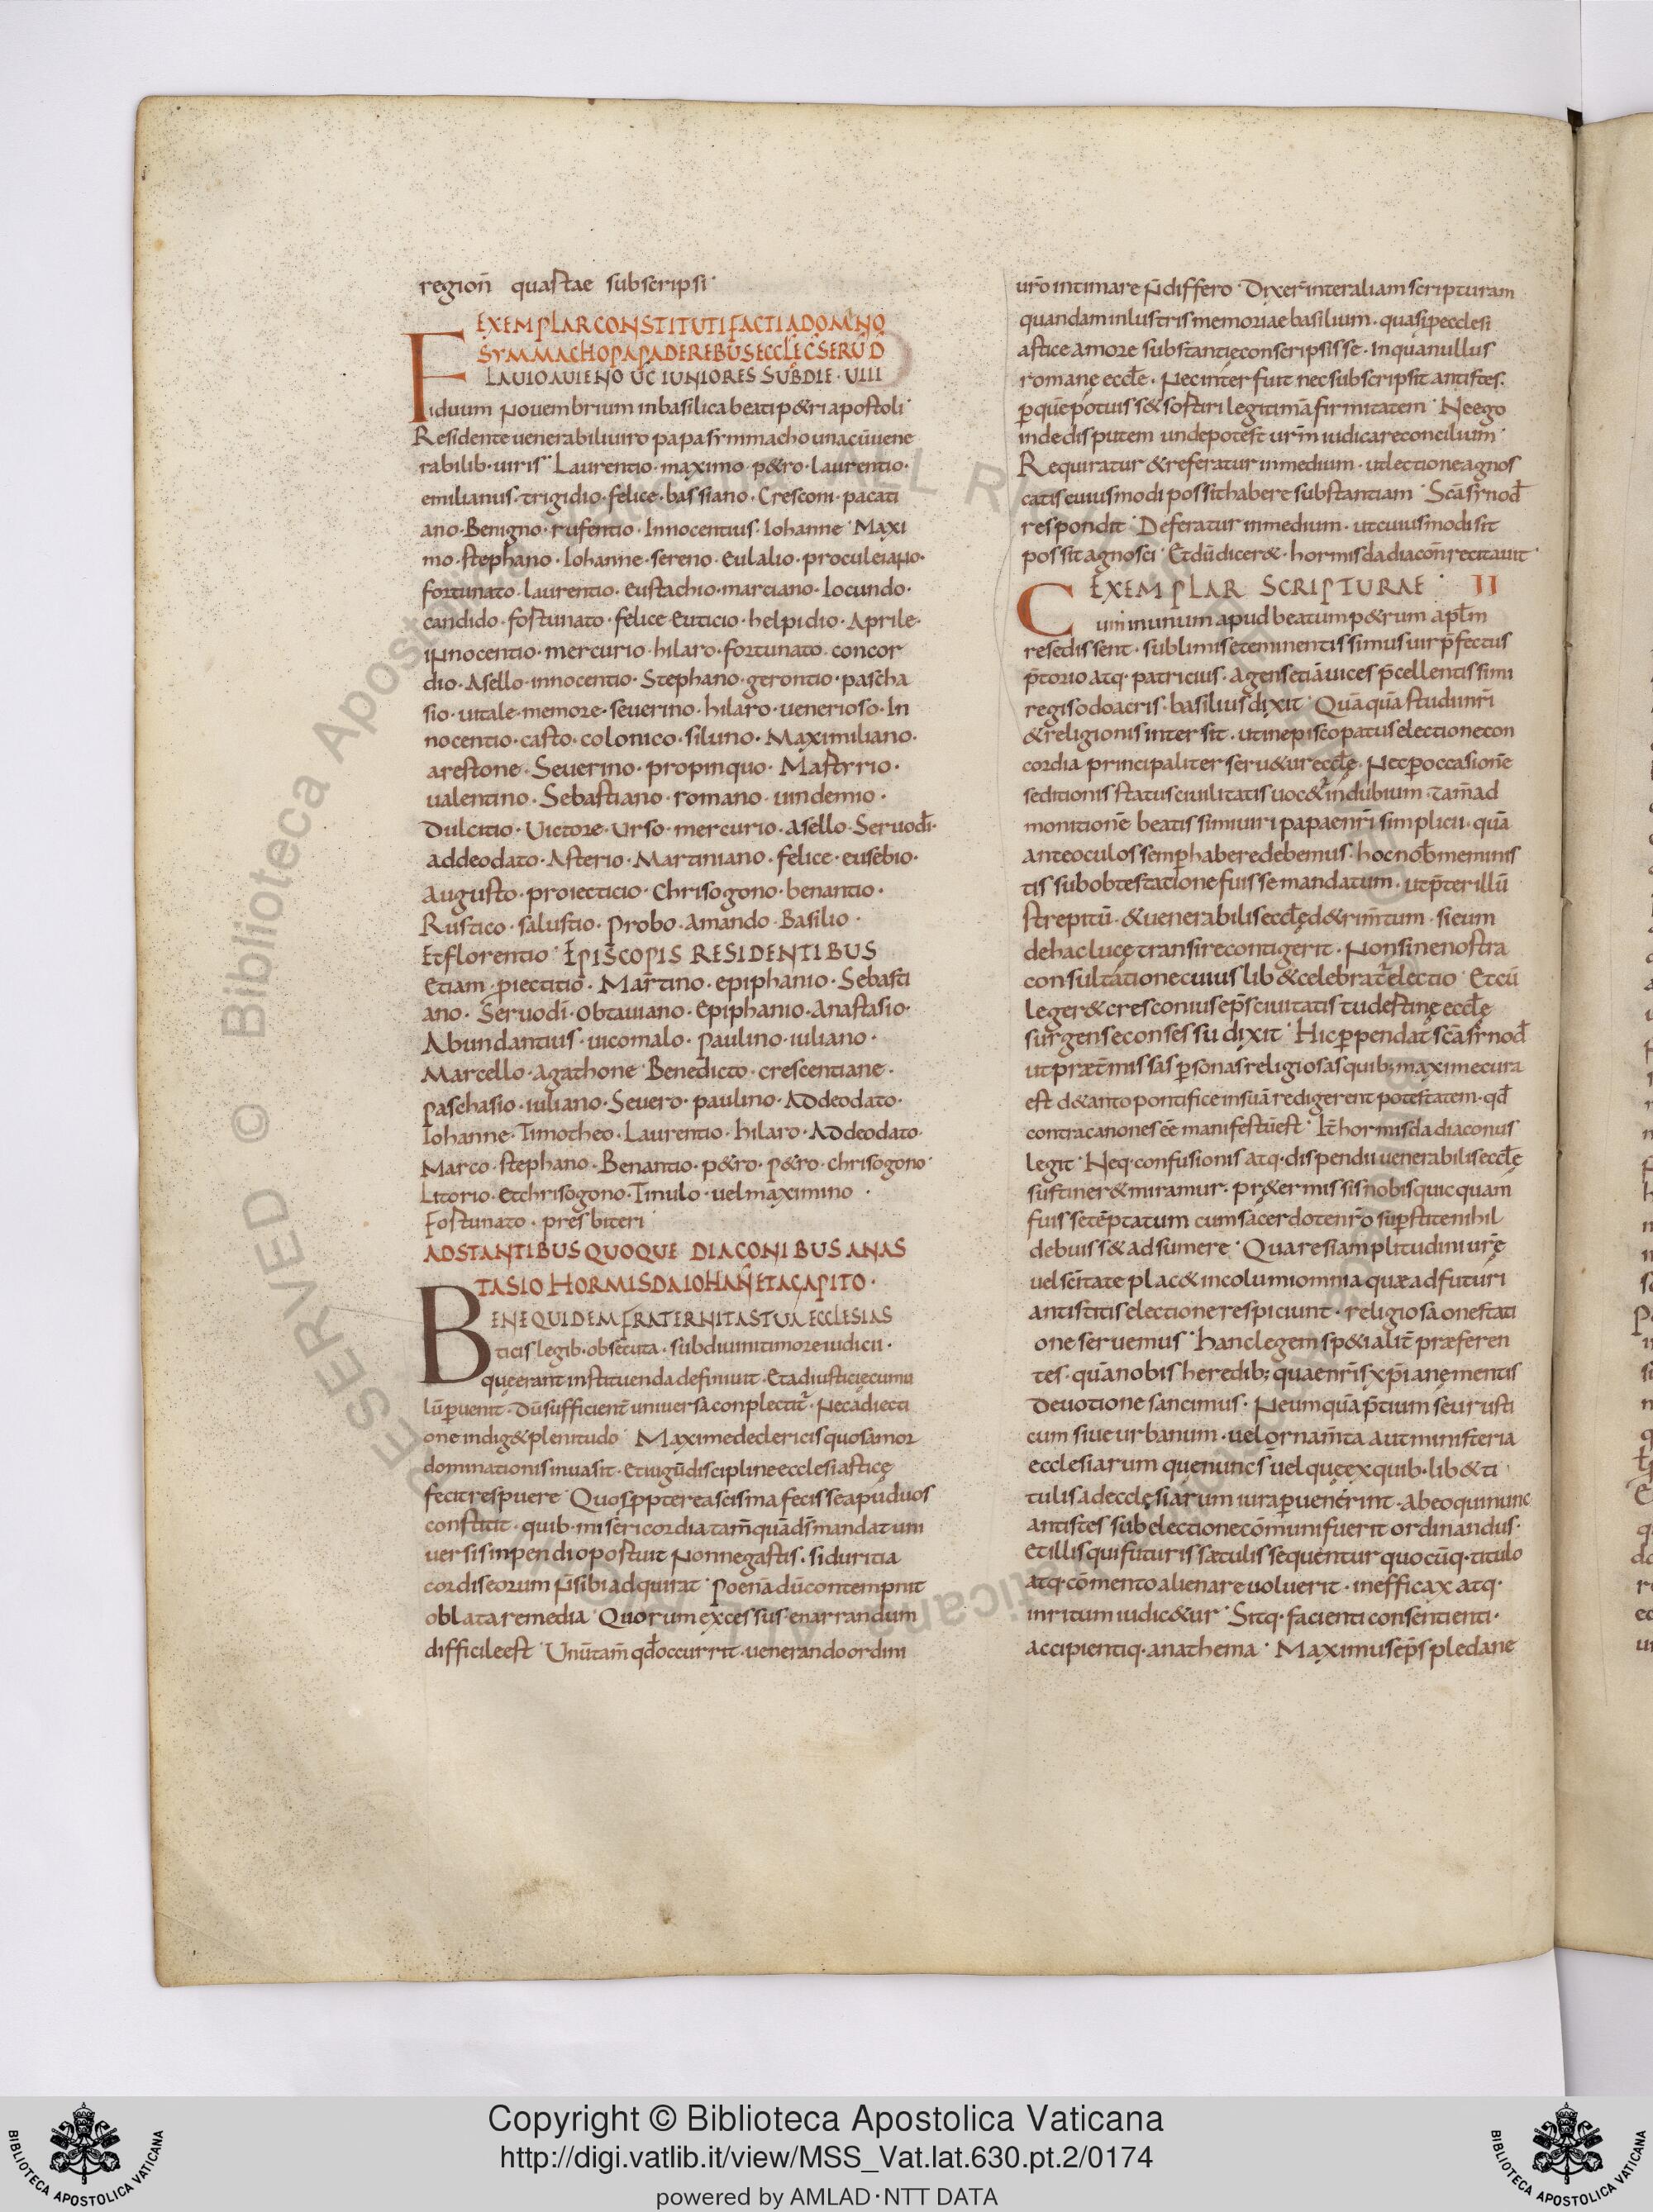 region̄ quastae subscripsi·
EXEMPLAR CONSTITUTI FACTI A DOMNO
SYMMACHO PAPA DE REBUS ECCLEC̄ SERU D
FLAUIO AUIENO UC̄ IUNIORES SUB DIE · UIIII
iduum Nouembrium in basilica beati p&ri apostoli·
Residente uenerabili uiro papa symmacho una cū uene
rabilib· uiris· Laurentio· maximo· p&ro· laurentio·
emilianus· trigidio· felice· bassiano· Cresconi· pacati
ano· Benigno· rufentio· Innocentius· Iohanne· Maxi
mo· stephano· Iohanne· sereno· eulalio· proculeiano·
fortunato· laurentio· eustachio· marciano· Iocundo·
candido· fostunato· felice· euticio· helpidio· Aprile·
iNnocentio· mercurio· hilaro· fortunato· concor
dio· Asello· innocentio· Stephano· gerontio· pascha
sio· uitale· memore· seuerino· hilaro· uenerioso· In
nocentio· casto· colonico· siluno· Maximiliano·
arestone· Seuerino· propinquo· Mastyrio·
ualentino· Sebastiano· romano· uindemio·
Dulcitio· Uictore· Urso· mercurio· asello· Seruod̄i·
addeodato· Asterio· Martiniano· felice· eusebio·
Augusto· proiecticio· Chrisogono· benantio·
Rustico· salustio· Probo· amando· Basilio·
Et florentio· EPISCOPIS RESIDENTIBUS
Etiam· p̱iectitio· Martino· epiphanio· Sebasti
ano· Seruodi· Obtauiano· Epiphanio· Anastasio·
Abundantius· uicomalo· paulino· iuliano·
Marcello· agathone· Benedicto· crescentiane·
paschasio· iuliano· Seuero· paulino· ADdeodato·
Iohanne· Timotheo· Laurentio· hilaro· ADdeodato·
Marco· stephano· Benantio· p&ro· p&ro· chrisogono·
Litorio· Et chrisogono· Tinulo· uel maximino·
Fostunato· presbiteri
ADSTANTIBUS QUOQUE DIACONIBUS ANAS
TASIO HORMISDA IOHAN̄ ET AGAPITO·
BENE QUIDEM FRATERNITAS TUA ECCLESIAS
ticis legib· obsecuta· sub diuini timore iudicii·
quę erant instituenda definiuit· Et ad iusticię cumu
lū ꝑuenit· dū sufficient̄ uniuersa conplectit̄· Nec adiecti
one indig& plenitudo· Maxime de clericis quos amor
dominationis inuasit· et uigū discipline ecclesiasticę
fecit respuere· Quos ꝓpterea scisma fecisse apud uos
constitit· quib· misericordia tam̄ quā ds̄ mandat uni
uersis inpendi opostuit Non negastis· si duritia
cordis eorum N̄ sibi adquirat· Poenā dū contempnit
oblata remedia· Quorum excessus enarrandum
difficile est· Unū tam̄ qd̄ occurrit· uenerando ordini
ur̄o intimare N̄ differo· Dixer̄ inter aliam scripturam
quandam inlustris memoriae basilium· quasi ꝑ ecclesi
astice amore substantię conscripsisse· In qua nullus
romanę eccl̄e· Nec interfuit nec subscripsit antistes·
ꝑ quē potuiss& sostiri legitimā firmitatem· Ne ego
inde disputem unde potest ur̄m iudicare concilium·
Requiratur & referatur in medium· ut lectione agnos
catis cuiusmodi possit habere substantiam· Sc̄a synod̄
respondit· Deferatur in medium· ut cuiusmodi sit
possit agnosci· Et dū dicer&· hormisda diacon̄ recitauit·
EXEMPLAR SCRIPTURAE· II
Cum in unum apud beatum p&rum apl̄m
resedissent· sublimis et eminentissimus uir p̄fectus
p̄torio atq· patricius· agens etiā uices p̄cellentissimi
regis odoacris· basilius dixit· Quā quā studii nr̄i
& religionis intersit· ut in episcopatus electione con
cordia principaliter seru&ur eccl̄ę· Nec ꝑ occasionē
seditionis status ciuilitatis uoc&ur in dubium· Tam̄ ad
monitionē beatissimi uiri papae nr̄i simplicii· quā
ante oculos semꝑ habere debemus· hoc nob̄ meminis
tis sub obtestatione fuisse mandatum· ut p̄ter illū
strepitū· & uenerabilis eccl̄ę d&rim̄tum· si eum
de hac luce transire contigerit· Non sine nostra
consultatione cuiuslib& celebrat̄ electio· Et cū
leger& cresconius ep̄s ciuitatis tudestinę eccl̄ę
surgens e consessu dixit· Hic ꝑpendat sc̄a synod̄
ut præt̄missas ꝑsonas religiosas quib; maxime cura
est d& anto pontifice in suā redigerent potestatem· qd̄
contra canones eē manifestū est· It̄ hormisda diaconus
legit· Neq· confusionis atq· dispendii uenerabilis eccl̄ę
sustiner& miramur· pr&ermissis nobis quicquam
fuisse tēptatum cum sacerdote nr̄o suꝑstite nihil
debuiss& adsumere· Quare si amplitudini ur̄ę
uel sc̄itate plac& incolumi omnia quæ ad futuri
antistitis electione respiciunt· religiosa onestati
one seruemus· hanc legem sp&ialit̄ præferen
tes· quā nobis heredib; quae nr̄is xp̄ianę mentis
Deuotione sancimus· Ne umquā p̄tium seu rusti
cum siue urbanum· uel ornam̄ta aut ministeria
ecclesiarum que nunc s̄ uel quę ex quib· lib& ti
tulis ad ecclęsiarum iura ꝑuenerint· ab eo qui nunc
antistes sub electione cōmuni fuerit ordinandus·
et illis qui futuris sæculis sequentur quocūq· titulo
atq· cōmento alienare uoluerit· inefficax atq·
inritum iudic&ur· Sitq· facienti consentienti·
accipientiq· anathema· Maximus ep̄s pledane
Copyright © Biblioteca Apostolica Vaticana
http://digi.vatlib.it/view/MSS_Vat.lat.630.pt.2/0174
powered by AMLAD·NTT DATA